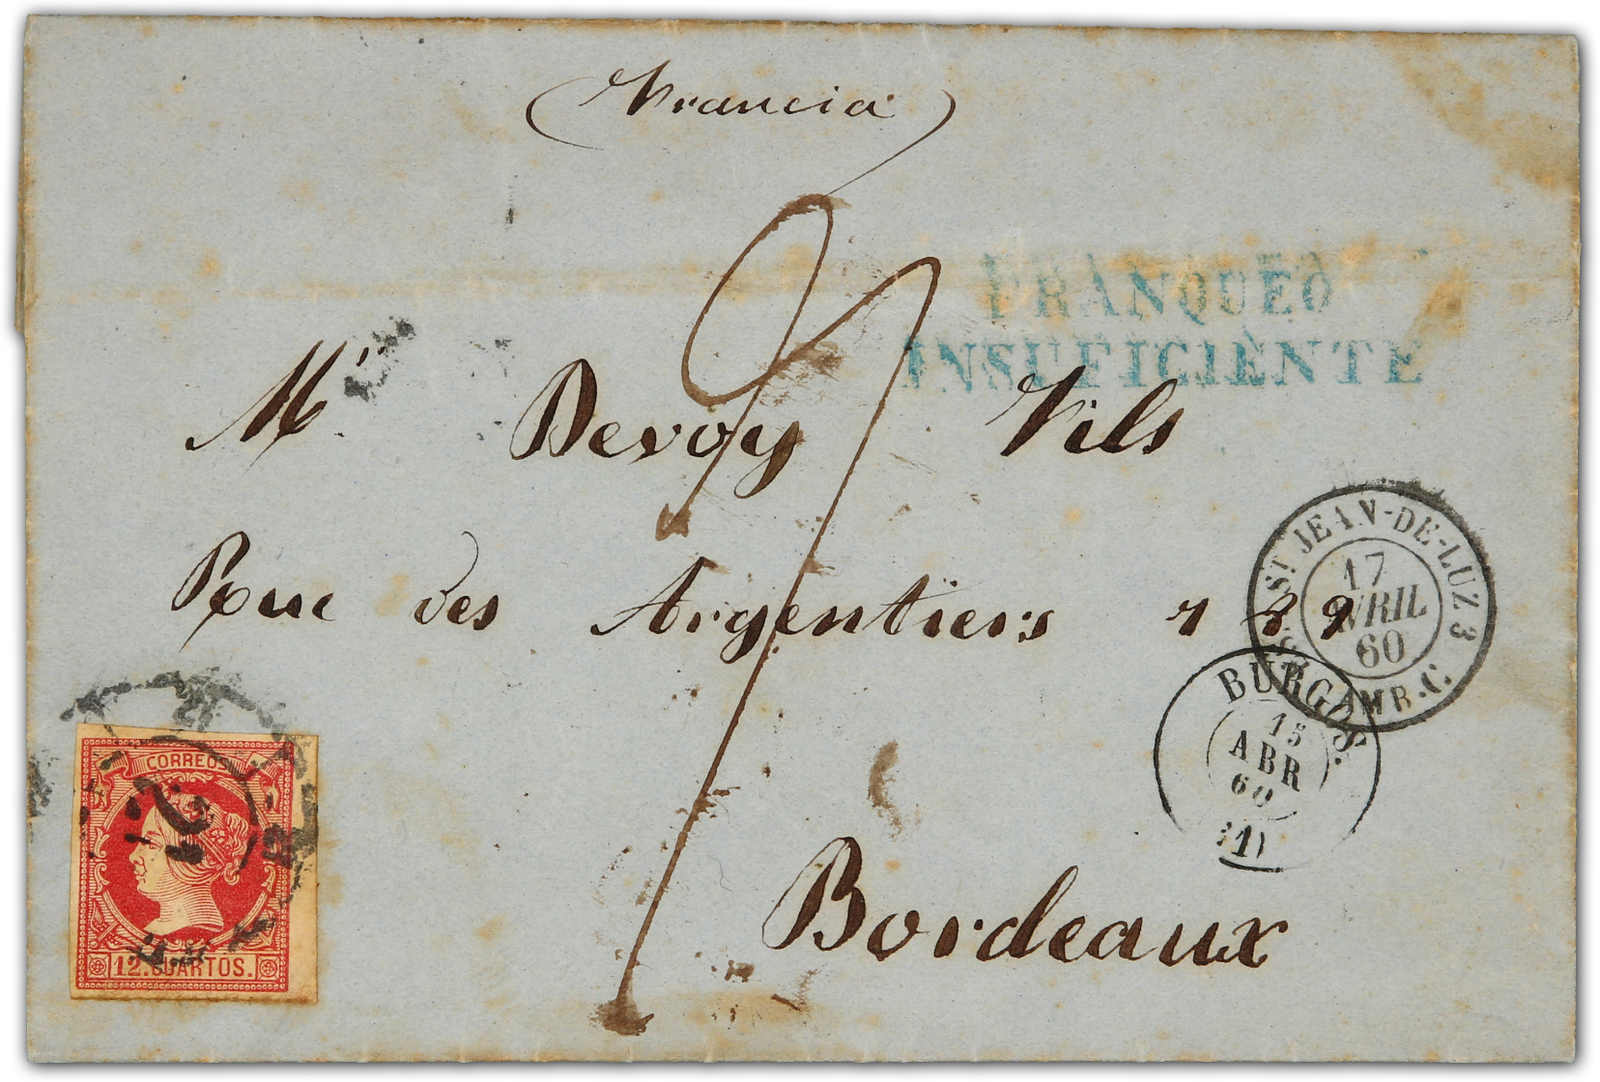 (Francia)
FRANQUEO
INSUFICIENTE
Mr Devoy Fils
Rue des Argentiers
ST JEAN-DE-LUZ 3
17
AVRIL
60
AMB. C.
BURGOS.
15
ABR
60
(1)
CORREOS
2
12. CUARTOS.
Bordeaux